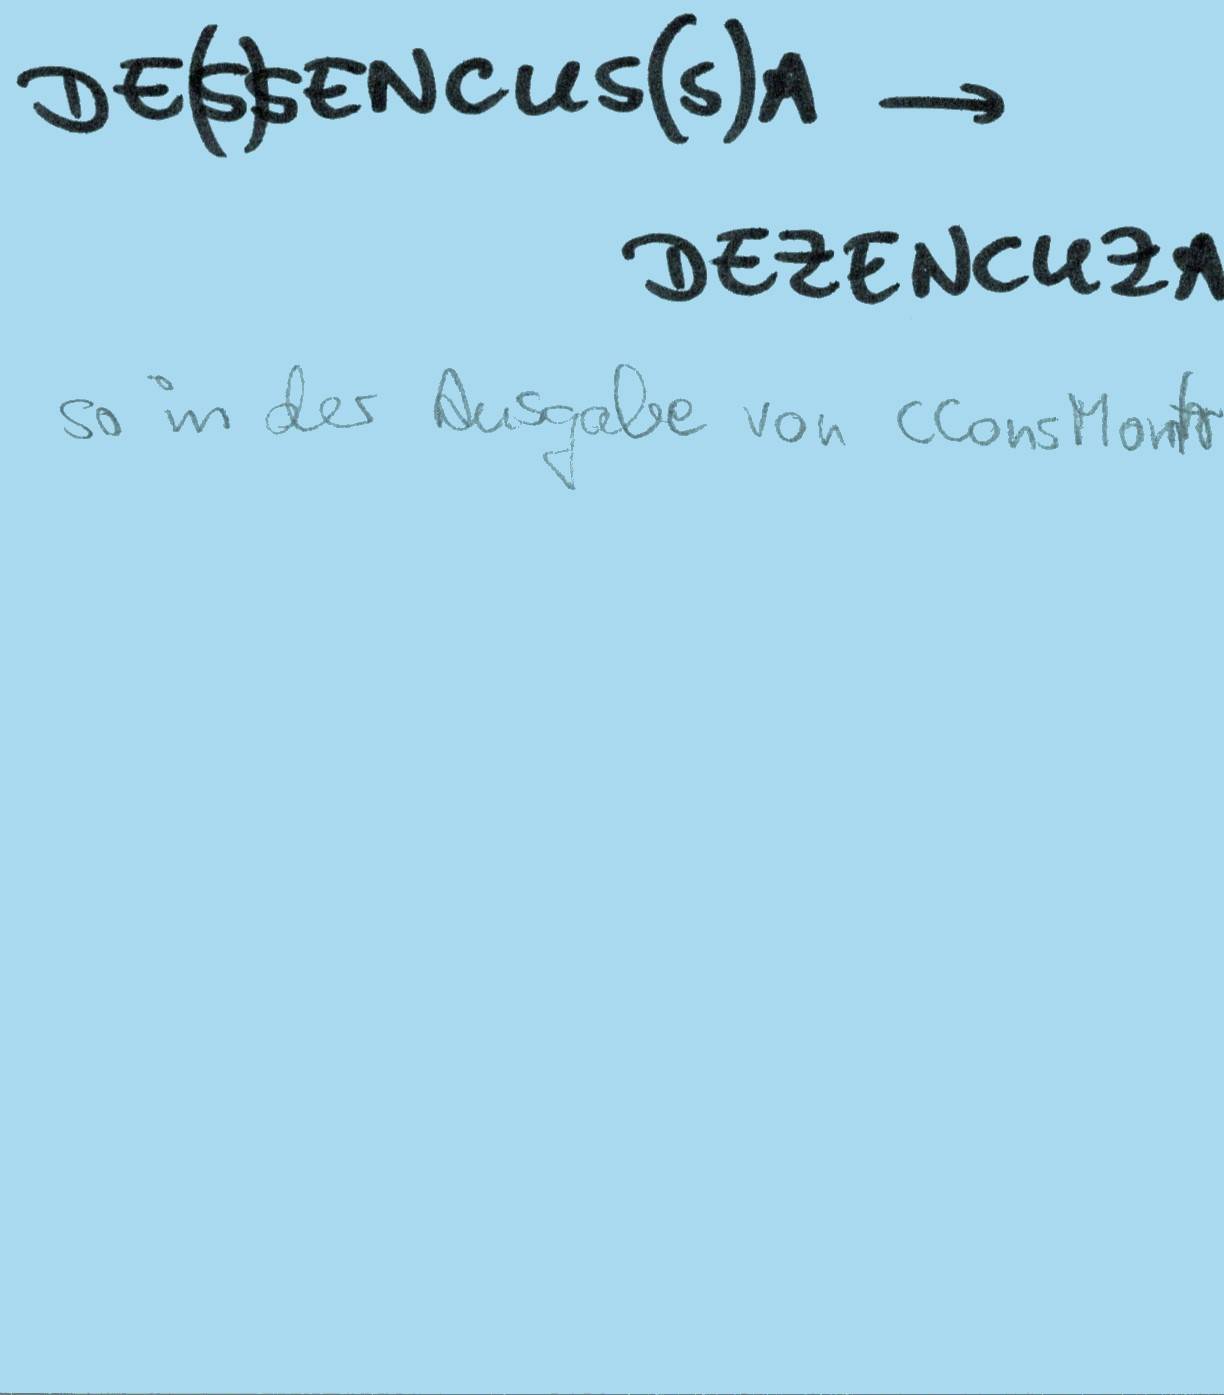 DE(S)SENCUS(S)A →
DEZENCUZA
so in der Ausgabe von CConsMontf